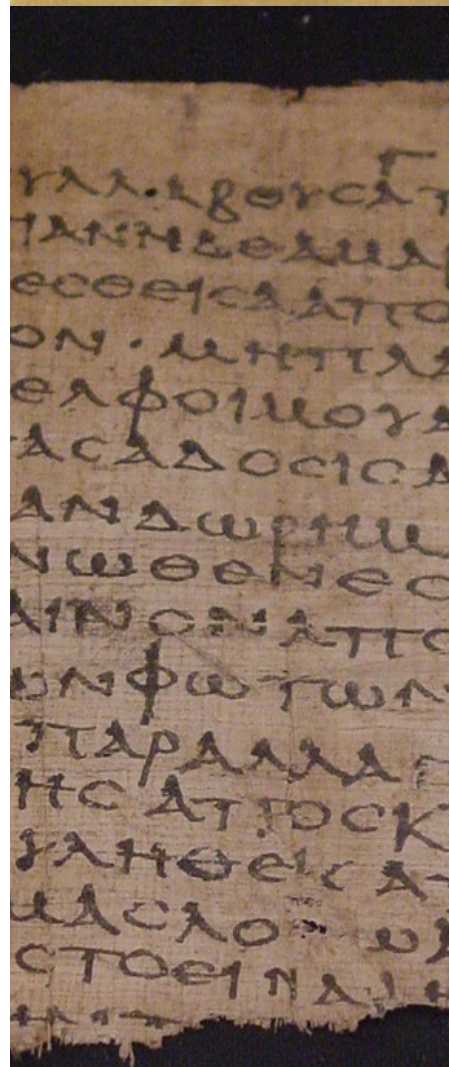 ΥΛΛ·ΑΒΟΥCΑΤ
ΙΑΝΗΔΕΑΜΑΡ
ΕCΘΕΙCΑΑΠΟ
ΟΝ · ΜΗΠΛΑ
ΕΛΦΟΙΜΟΥΑ
ΑCΑΔΟCΙCΑ
ΑΝΔΩΡΗΜ
ΝΩΘΕΝΕC
ΑΙΝΟΝΑΠΟ
ΩΝΦΩΤΩΝ
ΠΑΡΑΛΛΑΓ
ΗCΑΠΟCΚ
ΥΛΗΘΕΙCΑΠ
ΜΑCΛΟ ΩΑ
CΤΟΕΙΝΑΙΗ